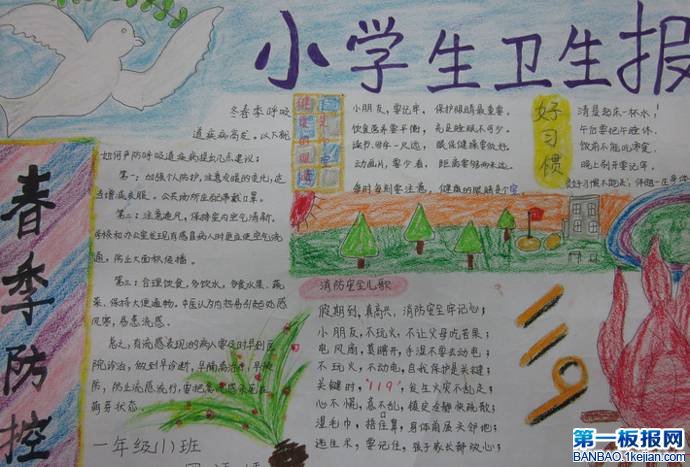 小学生卫生报
春季防控
冬春季呼吸
道疾病高发。以下就
如何严防呼吸道疾病提出几点建议:
第一:加强个人防护,注意
增减衣服。公共场所应
第二:注意通风,保持室内空气清新。
学校和办公室发现有感冒病人时更应使空气流
通,防止大面积传播。
第三:合理饮食,多饮水,多食水果、蔬
菜,保持大便通畅。中医认为内热易引起外感
风寒,易患流感。
总之,有流感表现的病人要及时到医
院诊治,做到早诊断,早隔离治疗,早预
防,防止流感流行,要把高流感杀死在
萌芽状态。
一年级(1)班
小朋友,要记牢,保护眼睛最重要。
饮食营养要平衡,充足睡眠不可少。
读书、写字一尺远,眼保健操要做好。
动画片,要少看,距离要够两米远。
时时刻刻要注意,健康的眼睛是个宝
好习惯
清晨起床一杯水!
午后要记午睡休,
饮前不能吃零食,
晚上刷牙要记牢,
好习惯不能丢,伴随一生身体
消防安全儿歌
假期到,真高兴,消防安全牢记心;
小朋友,不玩火,不让父母吃苦果;
电风扇,莫瞎开,手湿不要去动电;
不玩火,不动电,自我保护是关键;
关键时,"119",发生火灾不乱走;
心不慌,意不乱,镇定会静快疏散;
湿毛巾,捂住鼻,身体前屈头邻地;
逃生术,要记住,孩子家长都欢心;
119
第一板报网
BANBAO.1kejian.com